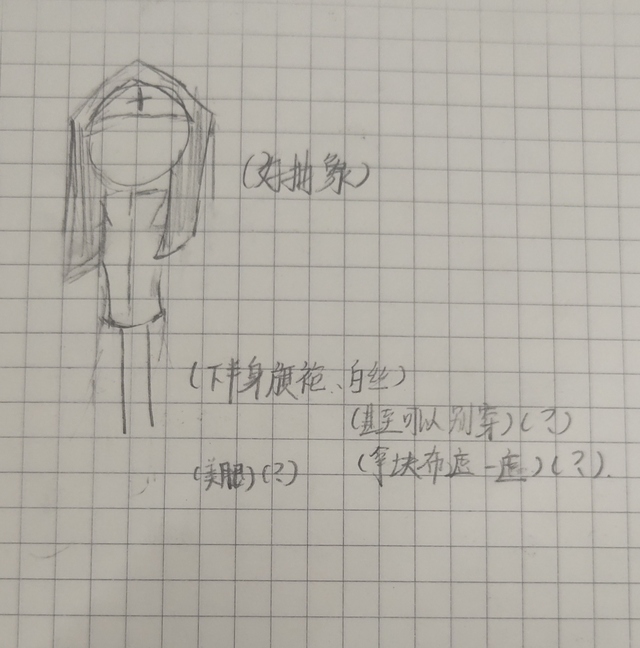 (好抽象)
(下半身旗袍、白丝)
(甚至可以别穿)(?)
(美腿)(?)
(拿块布遮一遮)(?).